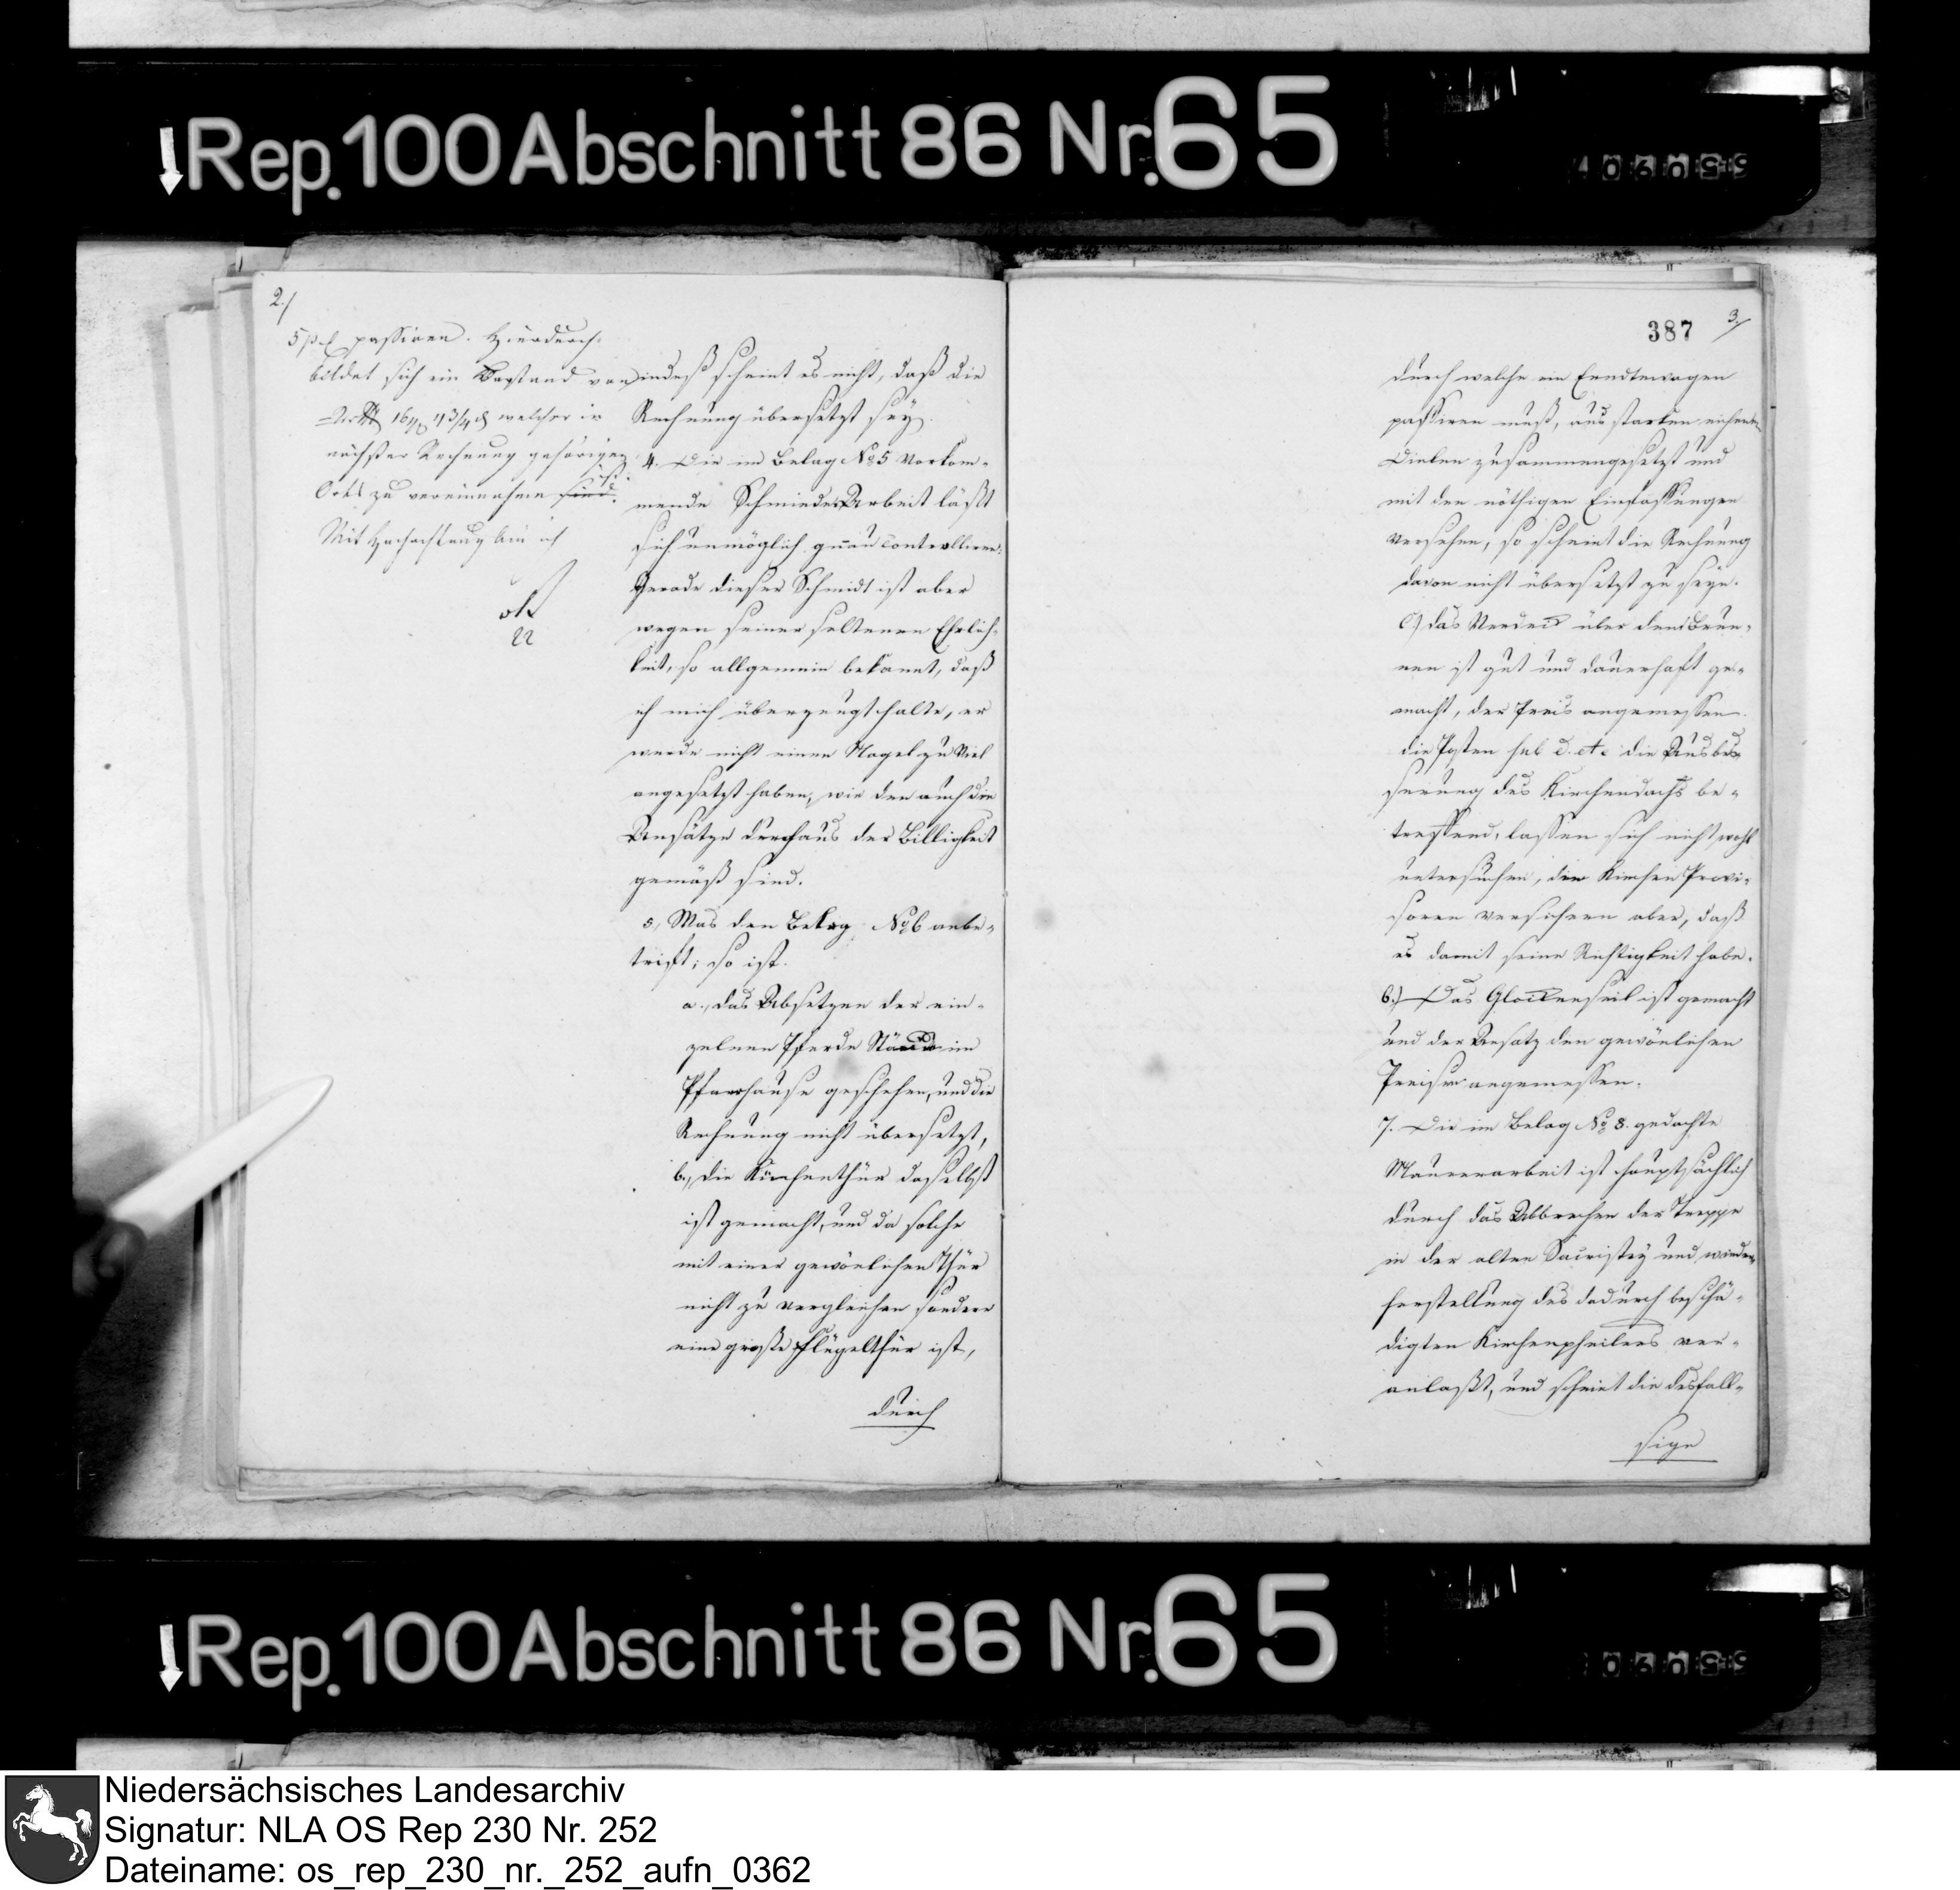 Rep. 100 Abschnitt 86 Nr. 65
2./
5 passiren. Hierdurch
bildet sich ein Bestand von
16 4 3/4 welcher in
nächster Rechnung gehörigen
Orts zu vereinnahmen sind. ist.
Mit Hochachtung bin ich
indeß scheint es nicht, daß die
Rechnung übersetzt sey.
4. Die im Belag No 5 vorkom-
mende Schmiede Arbeit läßt
sich unmöglich genau controlliren.
Gerade dieser Schmidt ist aber
wegen seiner seltenen Ehrlich-
keit, so allgemein bekannt, daß
ich mich überzeugt halte, er
werde nicht einen Nagel zu viel
angesetzt haben, wie den auch die
Ansätze durchaus der Billigkeit
gemäß sind.
5, Was den Belag No 6 anbe-
trift; so ist.
a., das Absetzen der ein-
zelnen Pferde Stände im
Pfarrhause geschehen, und die
Rechnung nicht übersetzt,
b., die Küchenthür daselbst
ist gemacht, und da solche
mit einer gewönlichen Thür
nicht zu vergleichen sondern
eine große Flügelthür ist,
durch
387
3./
durch welche ein Erndtewagen
passiren muß, aus starken eichenen
Dielen zusammengesetzt und
mit den nöthigen Einfassungen
versehen, so scheint die Rechnung
davon nicht übersetzt zu seyn.
c.) das Verdeck über den Brun-
nen ist gut und dauerhaft ge-
macht, der Preis angemessen.
die Posten sub d. et e die Ausbes-
serung des Kirchendachs be-
treffend, lassen sich nicht wohl
untersuchen, die Kirchen Provi-
soren versichern aber, daß
es damit seine Richtigkeit habe.
6.) Das Glockenseil ist gemacht
und der Ansatz den gewönlichen
Preisen angemessen.
7. Die im Belag No 8. gedachte
Maurerarbeit ist hauptsächlich
durch das Abbrechen der Treppe
in der alten Sacristey und wieder-
herstellung des dadurch beschä-
digten Kirchenpfeilers ver-
anlaßt, und scheint die desfall-
sige
Rep. 100 Abschnitt 86 Nr. 65
Niedersächsisches Landesarchiv
Signatur: NLA OS Rep 230 Nr. 252
Dateiname: os_rep_230_nr._252_aufn_0362